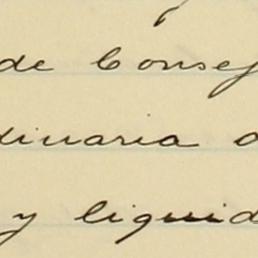 de Consej
dinaria d
y liquid